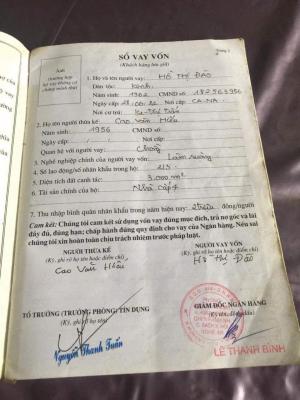 Trang 1
SỔ VAY VỐN
(Khách hàng lưu giữ)
Ảnh
(trường hợp
hộ vay không có
chứng minh thư)
1. Họ và tên người vay: HỒ THỊ ĐÀO
Dân tộc: kinh
Năm sinh: 1962 CMND số: 182563956
Ngày cấp: Nơi cấp: CA-NA
Địa chỉ cư trú:
2. Họ tên người thừa kế: Cao Văn Hiếu
Năm sinh: 1956 CMND số:
Ngày cấp: Nơi cấp:
Quan hệ với người vay: Chồng
3. Nghề nghiệp chính của người vay vốn: Làm ruộng
4. Số lao động/số nhân khẩu trong hộ: 2/5
5. Diện tích đất canh tác: 3.000 m²
6. Tài sản chính của hộ: Nhà cấp 4
7. Thu nhập bình quân nhân khẩu trong năm hiện nay: 2 triệu đồng/người
Cam kết: Chúng tôi cam kết sử dụng vốn vay đúng mục đích, trả nợ gốc và lãi
đầy đủ, đúng hạn; chấp hành đúng quy định cho vay của Ngân hàng. Nếu sai
chúng tôi xin hoàn toàn chịu trách nhiệm trước pháp luật.
NGƯỜI THỪA KẾ NGƯỜI VAY VỐN
(Ký, ghi rõ họ tên hoặc điểm chỉ) (Ký, ghi rõ họ tên hoặc điểm chỉ)
Cao Văn Hiếu Hồ Thị Đào
TỔ TRƯỞNG/PHÒNG TÍN DỤNG GIÁM ĐỐC NGÂN HÀNG
(Ký, ghi rõ họ tên) (Ký tên, đóng dấu)
Nguyễn Thanh Tuấn
LÊ THANH BÌNH